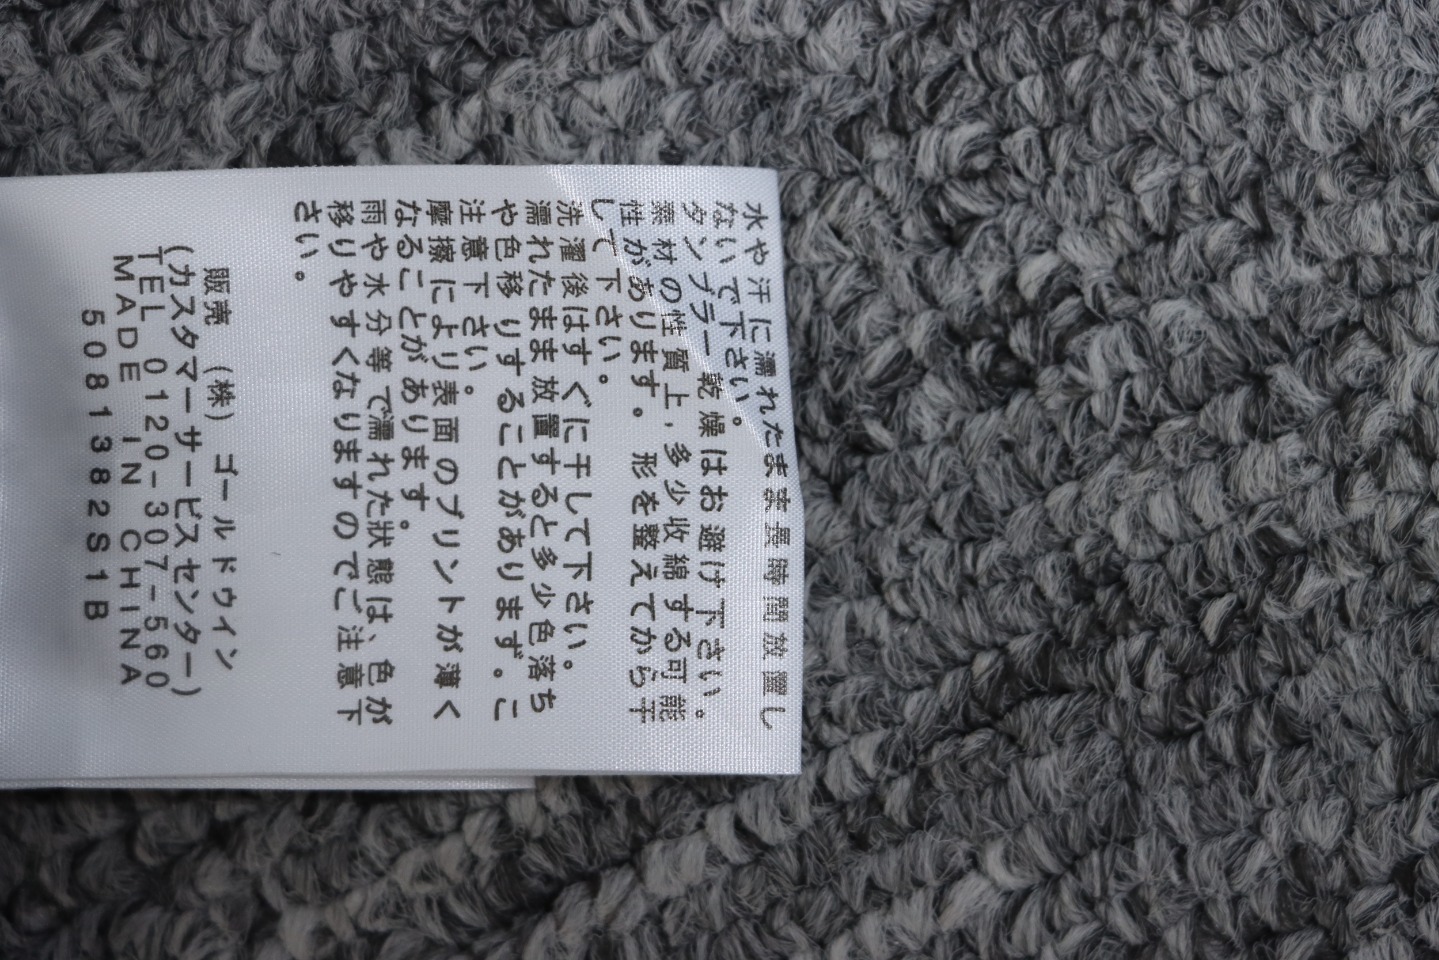 水や汗に濡れたまま長時間放置し
ないで下さい。
タンブラー乾燥はお避け下さい。
素材の性質上,多少収綿する可能
性があります。形を整えてから干
して下さい。
洗濯後はすぐに干して下さい。
濡れたまま放置すると多少色落ち
や色移りすることがあります。ご
注意下さい。
摩擦により表面のプリントが薄く
なることがあります。
雨や水分等で濡れた状態は、色が
移りやすくなりますのでご注意下
さい。
販売 (株) ゴールドウイン
(カスタマーサービスセンター)
TEL 0120-307-560
MADE IN CHINA
5081382S1B